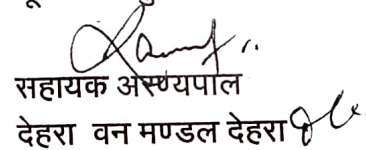 सहायक अरण्यपाल
देहरा वन मण्डल देहरा